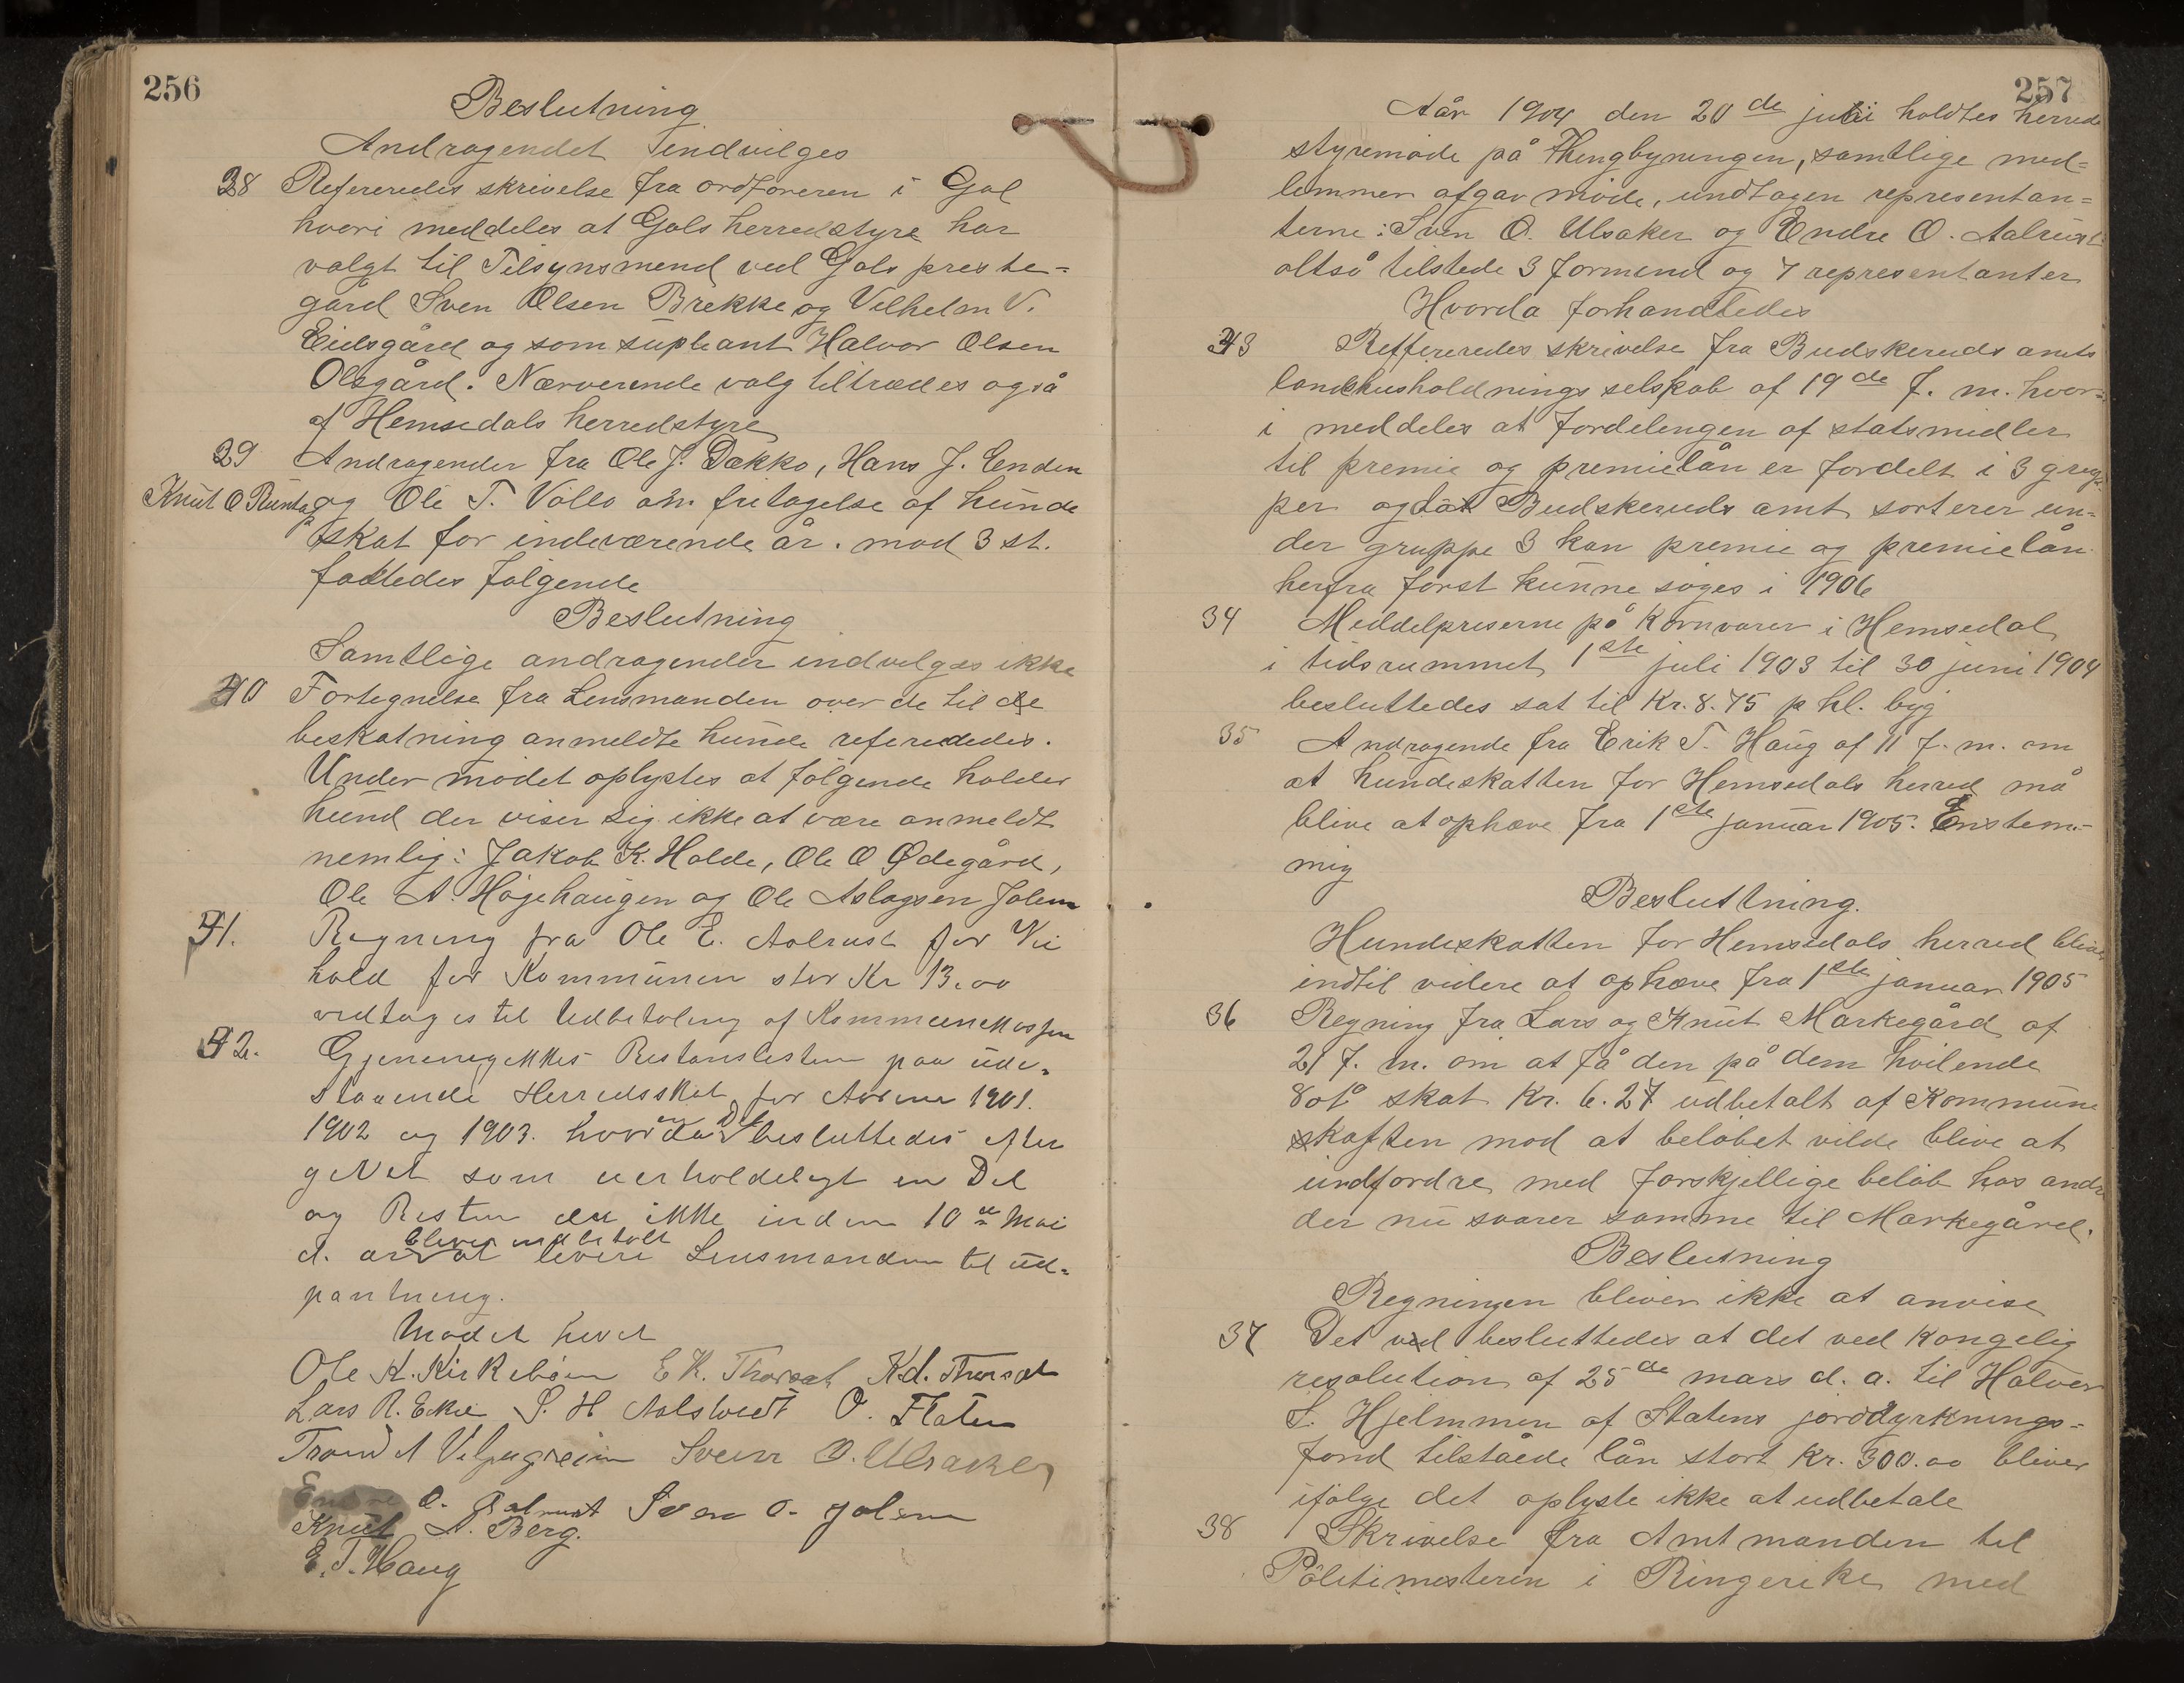 256
Beslutning
Andragendet indvilges
28 Refereredes skrivelse fra ordføreren i Gol
hvori meddeles at Gols herredstyre har
valgt til Tilsynsmend ved Gols preste=
gård Sven Olsen Brekke og Vilhelm V.
Eidsgård og som supleant Halvor Olsen
Olsgård. Nærverende valg tiltrædes også
af Hemsedals herredstyre
29 Andragender fra Ole J. Dækko, Hans J. Enden
Knut O og Ole T. Vøllo om fritagelse af hunde
skat for indeværende år. mod 3 st.
fattedes følgende
Beslutning
Samtlige andragender indvelges ikke
40 Fortegnelse fra Lensmanden over de til
beskatning anmeldte hunde refereredes.
Under mødet oplystes at følgende holder
hund der viser sig ikke at være anmeldt
nemlig: Jakob K. Holde, Ole O Ødegård,
Ole A. Høgehaugen og Ole Aslagsen Jolem
41. Regning fra Ole E. Aalrust for Vei
hold for Kommunen stor Kr 13.00
vedtages til Udbetaling af Kommunekassen
42. Gjennemgikkes Restanslisten paa ude=
staaende Herredsskat for Aarene 1901.
1902 og 1903. hvor besluttedes efter
givet som uerholdeligt en Del
og Resten der ikke inden 10de Mai
bliver indbetalt
d. at levere Lensmanden til ud=
pantning.
Mødet hevet
Ole K. Kirkebøen E K. Thorset K.d. Thorset
Lars R. Ekre S. H Aalstveit O. Flaten
Trond A Svein O. Ulsaker
Endre O. Aalrust Sven O. Jolem
Knut A. Berg.
E. T. Haug
257
Aår 1904 den 20de juli holdtes herred
styremøde på Thingbyningen, samtlige med=
lemmer afgav møde, undtagen representan=
terne: Sven O. Ulsaker og Endre O. Aalrust
altså tilstede 3 formend og 7 representanter
Hvorda forhandledes
43 Reffereredes skrivelse fra Budskeruds amts
landhusholdnings selskab af 19de f. m. hvor=
i meddeles at fordelengen af statsmidler
til premie og premielån er fordelt i 3 grup
per og da Budskeruds amt sorterer un=
der gruppe 3 kan premie og premielån
herfra først kunne søges i 1906
34 Meddelpriserne på Kornvarer i Hemsedal
i tidsrummet 1ste juli 1903 til 30 juni 1904
besluttedes sat til Kr. 8.75 p hl. byg
35 Andragende fra Erik T. Haug af 11 f. m. om
at hundeskatten for Hemsedals herred må
blive at ophæve fra 1ste januar 1905. Enstem=
mig
Besluttning.
Hundeskatten for Hemsedals herred blive
indtil videre at ophæve fra 1ste januar 1905
36 Regning fra Lars og Knut Markegård af
21 f. m. om at få den på dem hvilende
skat Kr. 6.27 udbetalt af Kommune
mod at beløbet vilde blive at
undfordre med forskjellige beløb hos andre
der nu svarer samme til Markegård.
Beslutning
Regningen bliver ikke at anvise
37 Det ved besluttedes at det ved kongelig
resolution af 25de mars d. a. til Halvor
S. Hjelmmen af Statens jorddyrknings=
fond tilståede lån stort Kr. 300.00 bliver
ifølge det oplyste ikke at udbetale
38 Skrivelse fra Amtmanden til
Politimesteren i Ringerike med